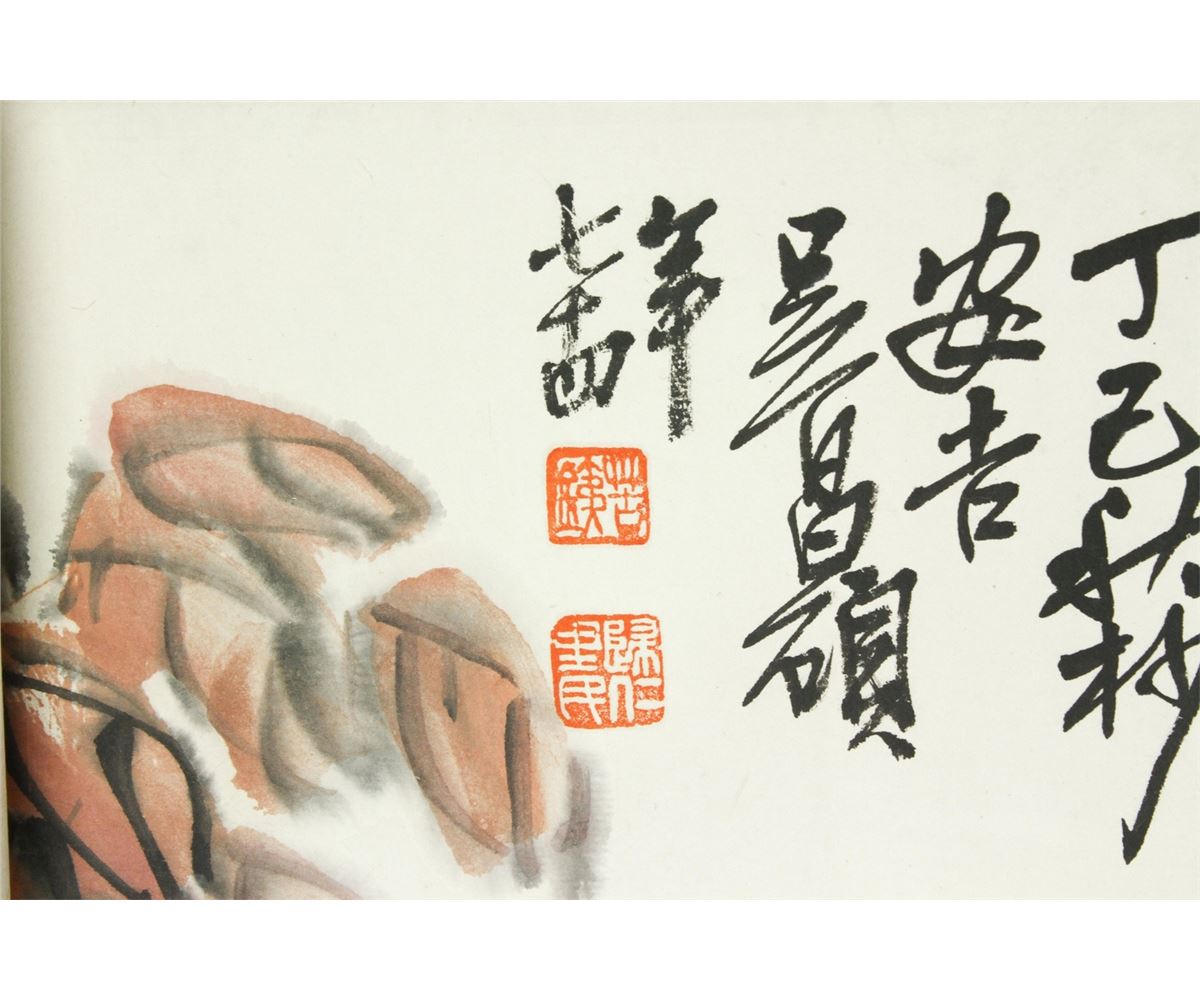 丁巳秋杪
安吉
吳昌碩
年
七十四
苦鐵
歸仁里民